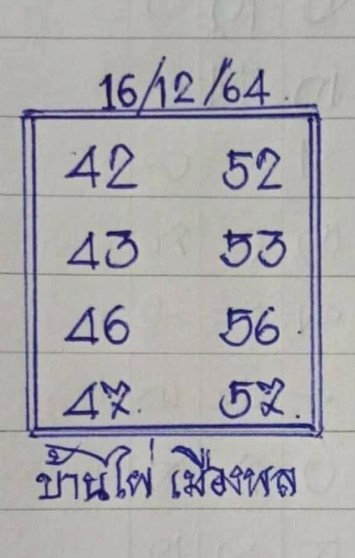 16/12/64
42 52
43 53
46 56
47 57
บ้านไผ่ เมืองพล